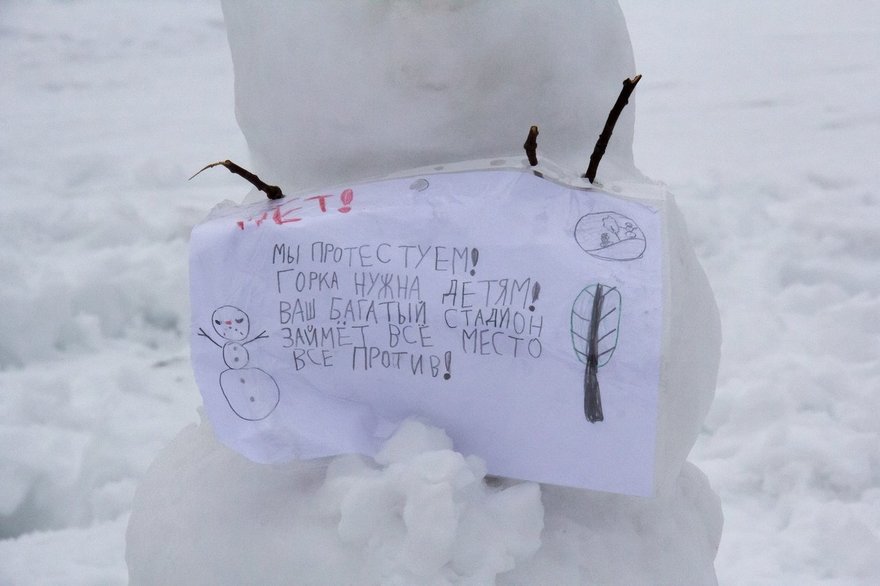 МЫ ПРОТЕСТУЕМ!
ГОРКА НУЖНА ДЕТЯМ!
ВАШ БАГАТЫЙ СТАДИОН
ЗАЙМЁТ ВСЁ МЕСТО
ВСЕ ПРОТИВ!